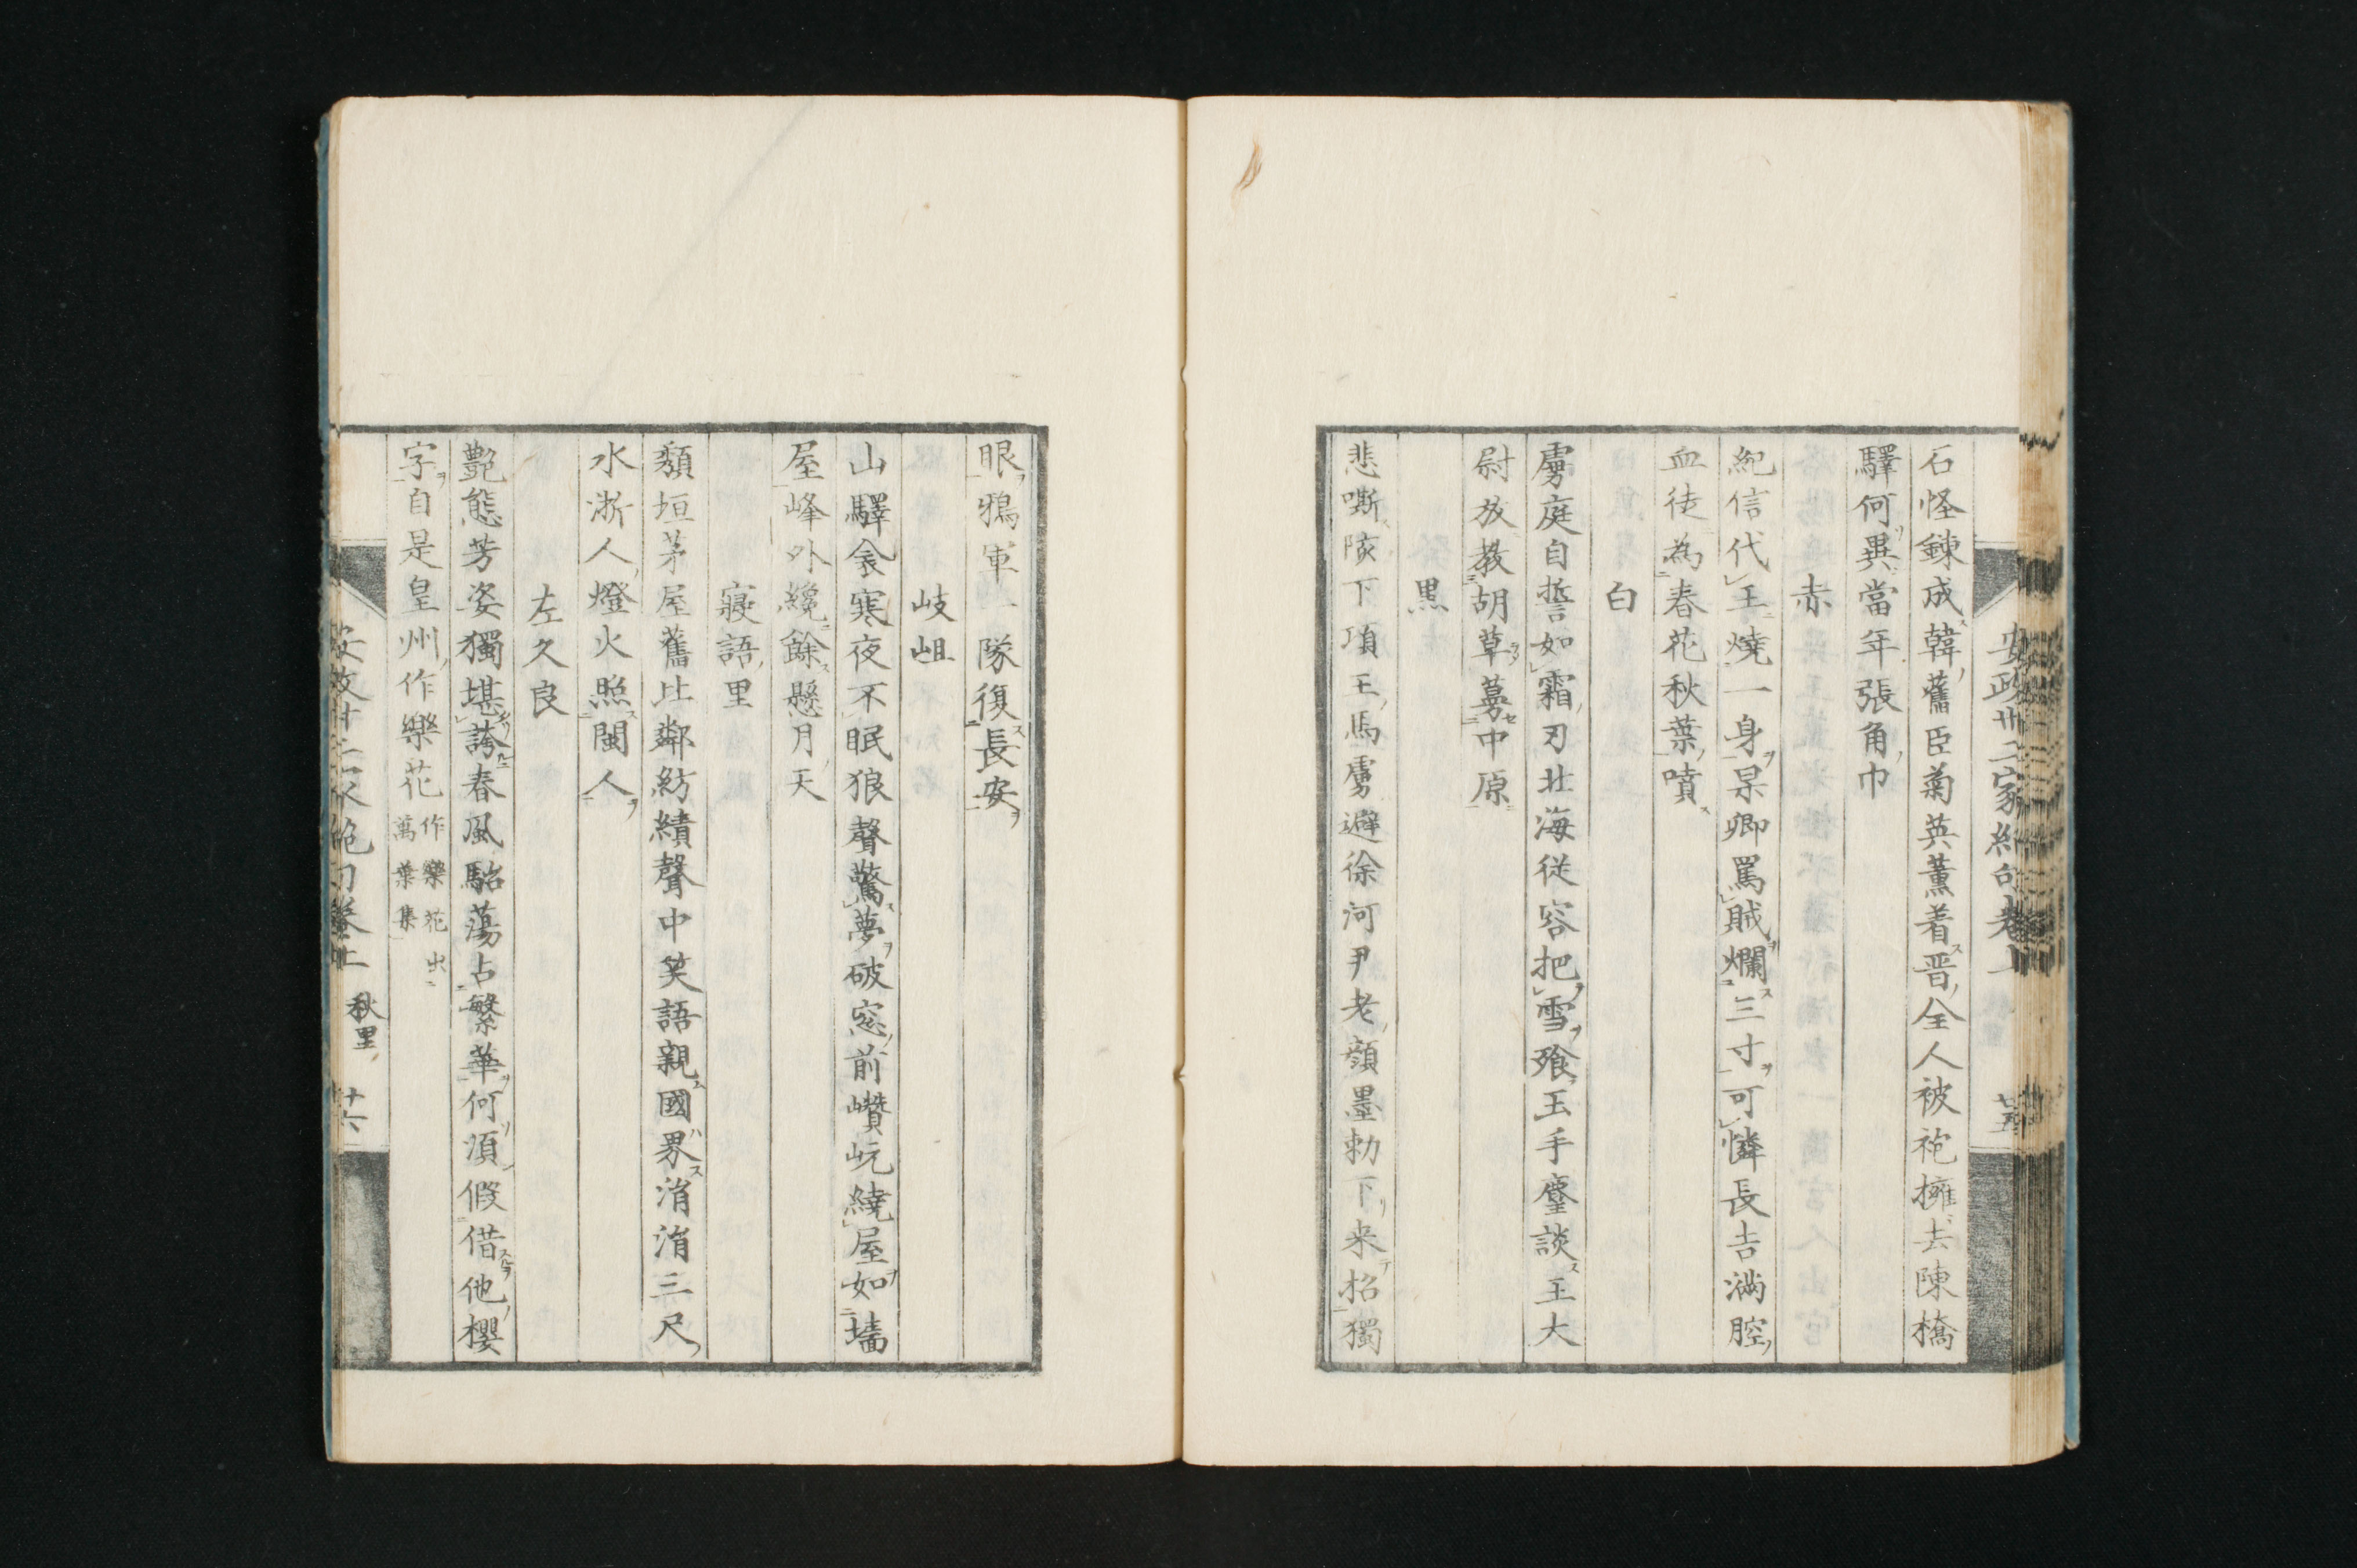 安政卅二家絶句卷上
十五
石怪錬成韓舊臣菊英薰着晋全人被袍擁去陳橋
驛何異當年張角巾
赤
紀信代王燒一身杲卿罵賊爛三寸可憐長吉滿腔
血徒為春花秋葉噴
白
虜庭自誓如霜刃北海従容把雪飱玉手麈談王大
尉放教胡草蔓中原
黒
悲嘶陔下項王馬虜避徐河尹老顔墨勅下来招獨
眼鴉軍一隊復長安
岐岨
山驛衾寒夜不眠狼聲驚夢破窓前巑岏繞屋如墻
屋峰外纔餘懸月天
寢語里
頽垣茅屋舊比鄰紡績聲中笑語親國界涓涓三尺
水浙人燈火照閩人
左久良
艶態芳姿獨堪誇春風駘蕩占繁華何須假借他櫻
字自是皇州作樂花
作樂花出
萬葉集
安政卅二家絶句卷上
秋里
十六